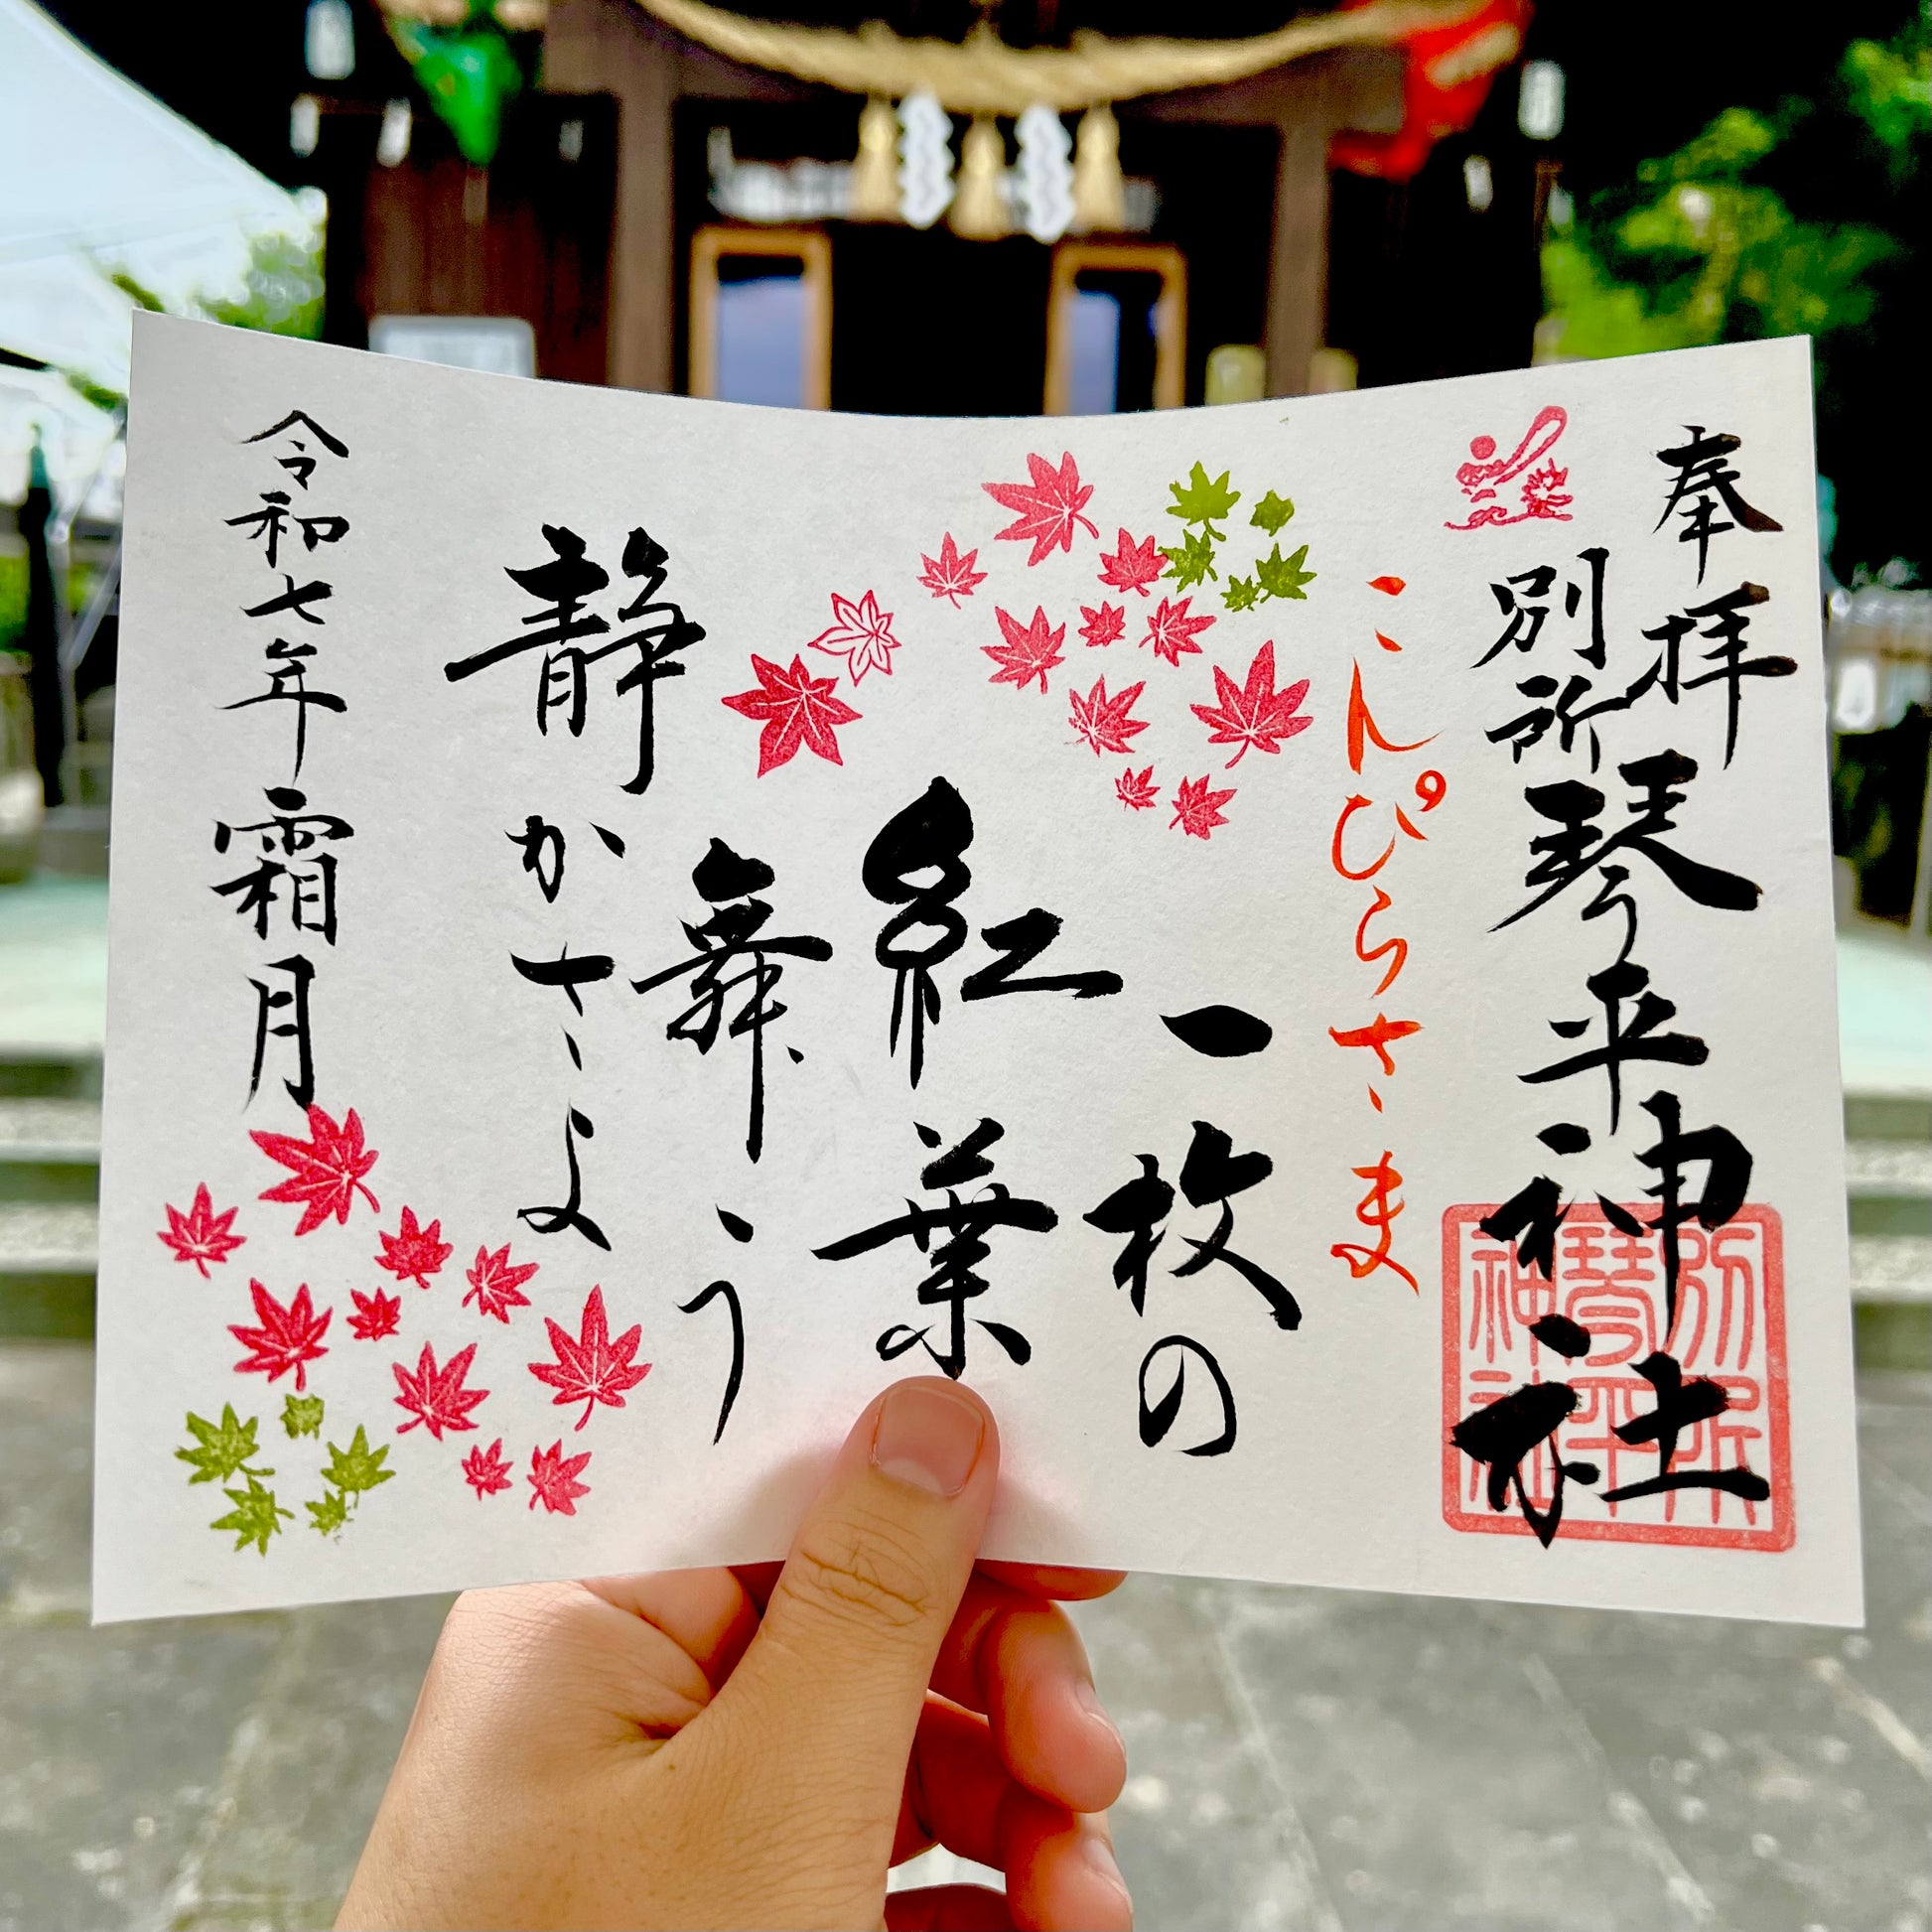 奉拝
別所琴平神社
別所
琴平
神社
こんぴらさま
一枚の
紅葉
舞う
静かさよ
令和七年霜月